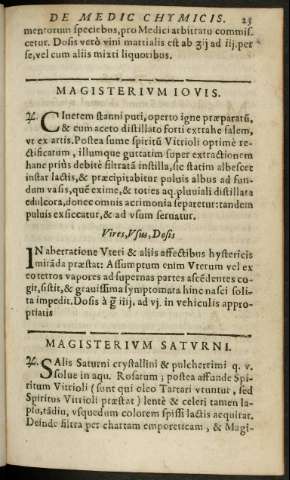 DE MEDIC CHYMICIS. 25
mentorum speciebus, pro Medici arbitratu commis
cetur. Dosis verò vini martialis est ab ʒij ad iij. per
se, vel cum aliis mixti liquoribus.
MAGISTERIVM IOVIS.
♃. CInerem stanni puri, operto igne præparatũ,
& cum aceto distillato forti extrahe salem,
vt ex artis. Postea sume spiritũ Vitrioli optimè re-
ctificatum, illumque guttatim super extractionem
hanc priùs debitè filtratã instilla, sic statim albescet
instar lactis, & præcipitabitur puluis albus ad fun-
dum vasis, quẽ exime, & toties aq. pluuiali distillata
edulcora, donec omnis acrimonia separetur: tandem
puluis exsiccatur, & ad vsum seruatur.
Vires, Vsus, Dosis
IN aberratione Vteri & aliis affectibus hystericis
mirãda præstat: Assumptum enim Vterum vel ex
eo tetros vapores ad supernas partes ascẽdentes co-
git, sistit, & grauissima symptomata hinc nasci soli-
ta impedit. Dosis à iiij. ad vj. in vehiculis appro-
ptiatis
MAGISTERIVM SATVRNI.
♃. SAlis Saturni crystallini & pulcherrimi q. v.
solue in aqu. Rosarum; postea affunde Spi-
ritum Vitrioli (sunt qui oleo Tartari vtuntur, sed
Spiritus Vitrioli præstat) lentè & celeri tamen la-
psu, tãdiu, vsquedum colorem spissi lactis acquirat.
Deinde filtra per chartam emporeticam, & Magi-